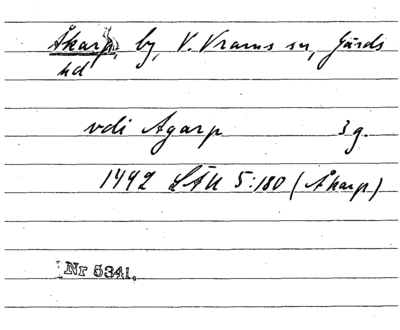 Åkarp, by, V. Vrams sn, Gärds
hd
vdi Agarp 3 g.
1492 LÄU 5:180 (Åkarp)
Nr 5341.